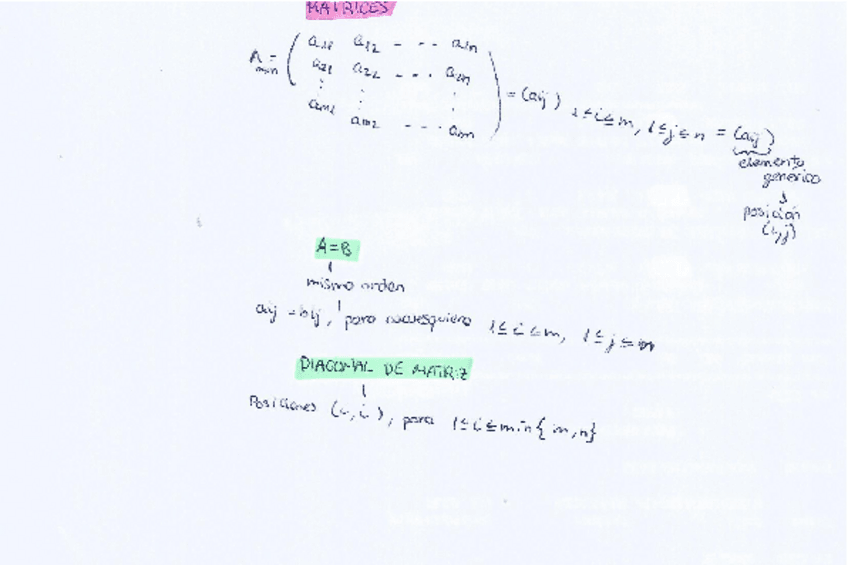 MATRICES
A = ( a11 a12 - - - a1n
mxn a21 a22 - - - a2n
⋮ ⋮ ⋮
am1 am2 - - - amn ) = (aij) 1≤i≤m, 1≤j≤n = (aij)
elemento
genérico
↓
posición
(i,j)
A=B
mismo orden
aij = bij, para 1≤i≤m, 1≤j≤n
DIAGONAL DE MATRIZ
Posiciones (i,i), para 1≤i≤min{m,n}